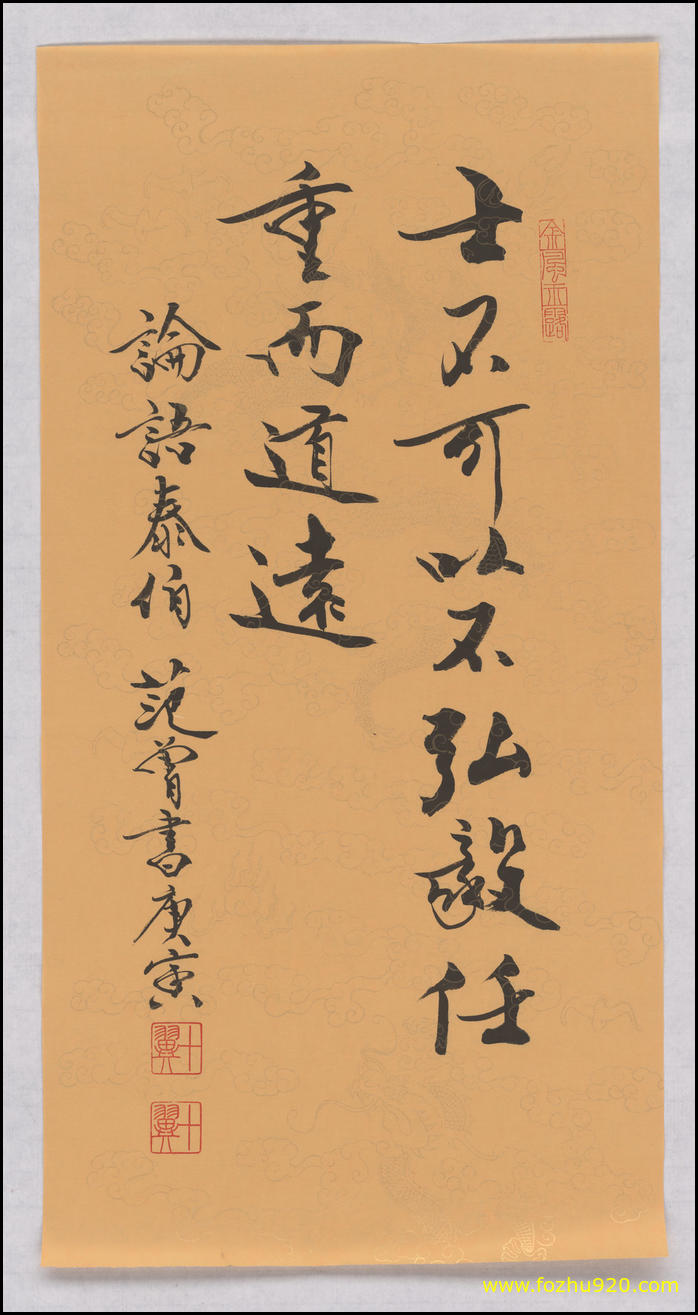 金風玉露
士不可以不弘毅任
重而道遠
論語泰伯 范曾書庚寅
十翼
十翼
www.fozhu920.com